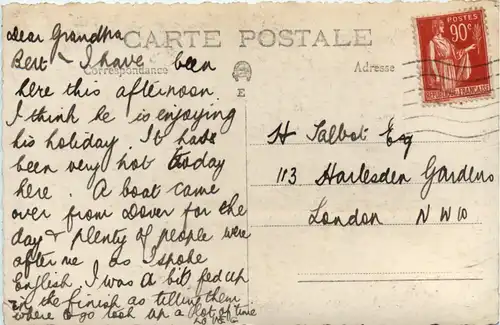 CARTE POSTALE
Correspondance
Adresse
E
POSTES
90c
Dear Grandpa
Bert & I have been
here this afternoon
I think he is enjoying
his holiday. It has
been very hot today
here. A boat came
over from Dover for the
day & plenty of people were
after me as I spoke
English I was a bit fed up
in the finish as telling them
where to go took up a lot of time
H Talbot Esq
113 Harlesden Gardens
London NW10